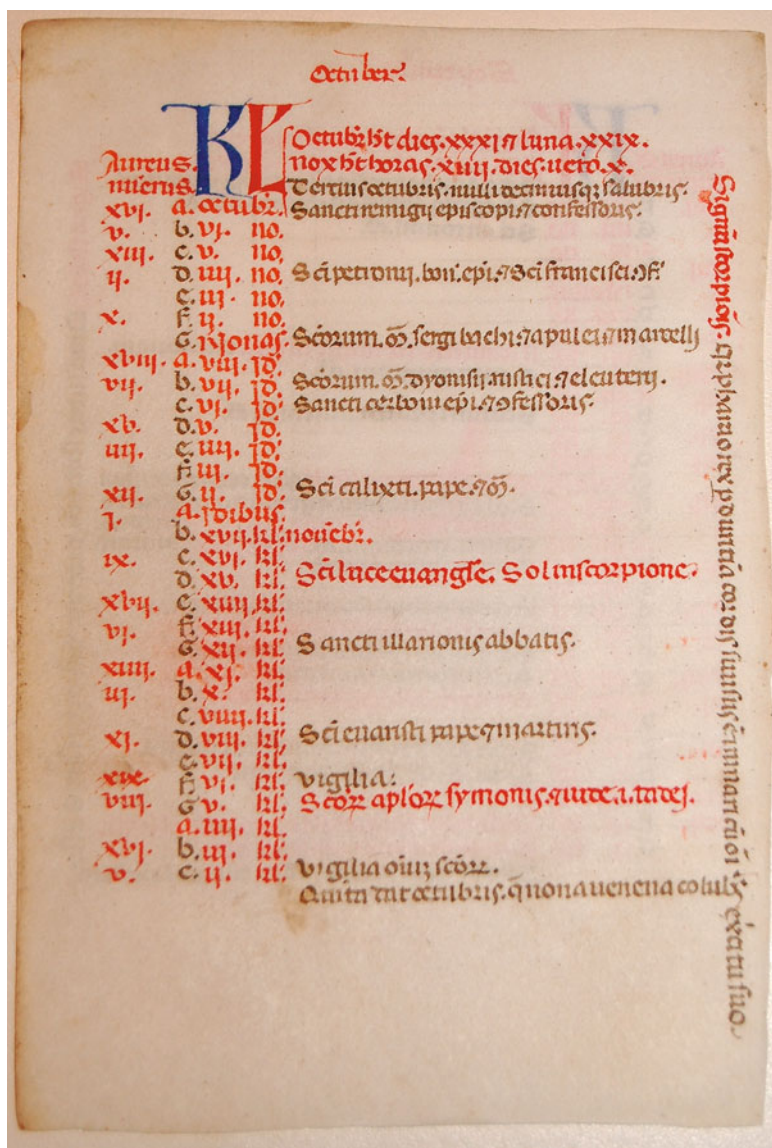 Octuber.
KL Octubr̄ h̄t dies. xxxi ⁊ luna. xxix.
Aureus. nox h̄t horas. xiiij. dies. uero. x.
nūerus. Tercius octubris. nulli decimusq; salubris.
xvi. a. octubr̄. Sancti remigij episcopi ⁊ confessoris.
v. b. vj. no.
xiii. c. v. no.
ij. d. iiij. no. Sc̄i petronij. bon̄. ep̄i. ⁊ Sc̄i francisci. ↄf̄
e. iij. no.
x. f. ij. no.
G. Nonas. Sc̄orum. m̄. sergi bachi. ⁊ apulei ⁊ marcelli
xviii. a. viij. jd'.
vij. b. vij. jd'. Sc̄orum. m̄. dyonisij. rustici. ⁊ eleuterij.
c. vj. jd'. Sancti cerbonii ep̄i. ⁊ ↄfessoris.
xv. d. v. jd'.
iiij. e. iiij. jd'.
f. iij. jd'.
xij. G. ij. jd'. Sc̄i calixti. pape. ⁊ m̄.
j. a. jdibus.
b. xvij. kl. nouēbr̄.
ix. c. xvj. kl.
d. xv. kl. Sc̄i luce euangl̄e. Sol in scorpione.
xvij. e. xiiij. kl.
vj. f. xiij. kl.
G. xij. kl. Sancti illarionis abbatis.
xiiij. a. xj. kl.
iij. b. x. kl.
c. viiij. kl.
xj. d. viij. kl. Sc̄i euaristi pape ⁊ martiris.
e. vij. kl.
xix. f. vj. kl. vigilia.
viij. G. v. kl. Sc̄orꝝ apl̄orꝝ symonis. ⁊ iude. i. tadej.
a. iiij. kl.
xvj. b. iij. kl.
v. c. ij. kl. vigilia oīuȝ sc̄orꝝ.
Quinta dat octubris. q̄ nona uenena colubr̄
Signū scorpiōis. qr̄ pharao rex ꝑ duritiā cordis